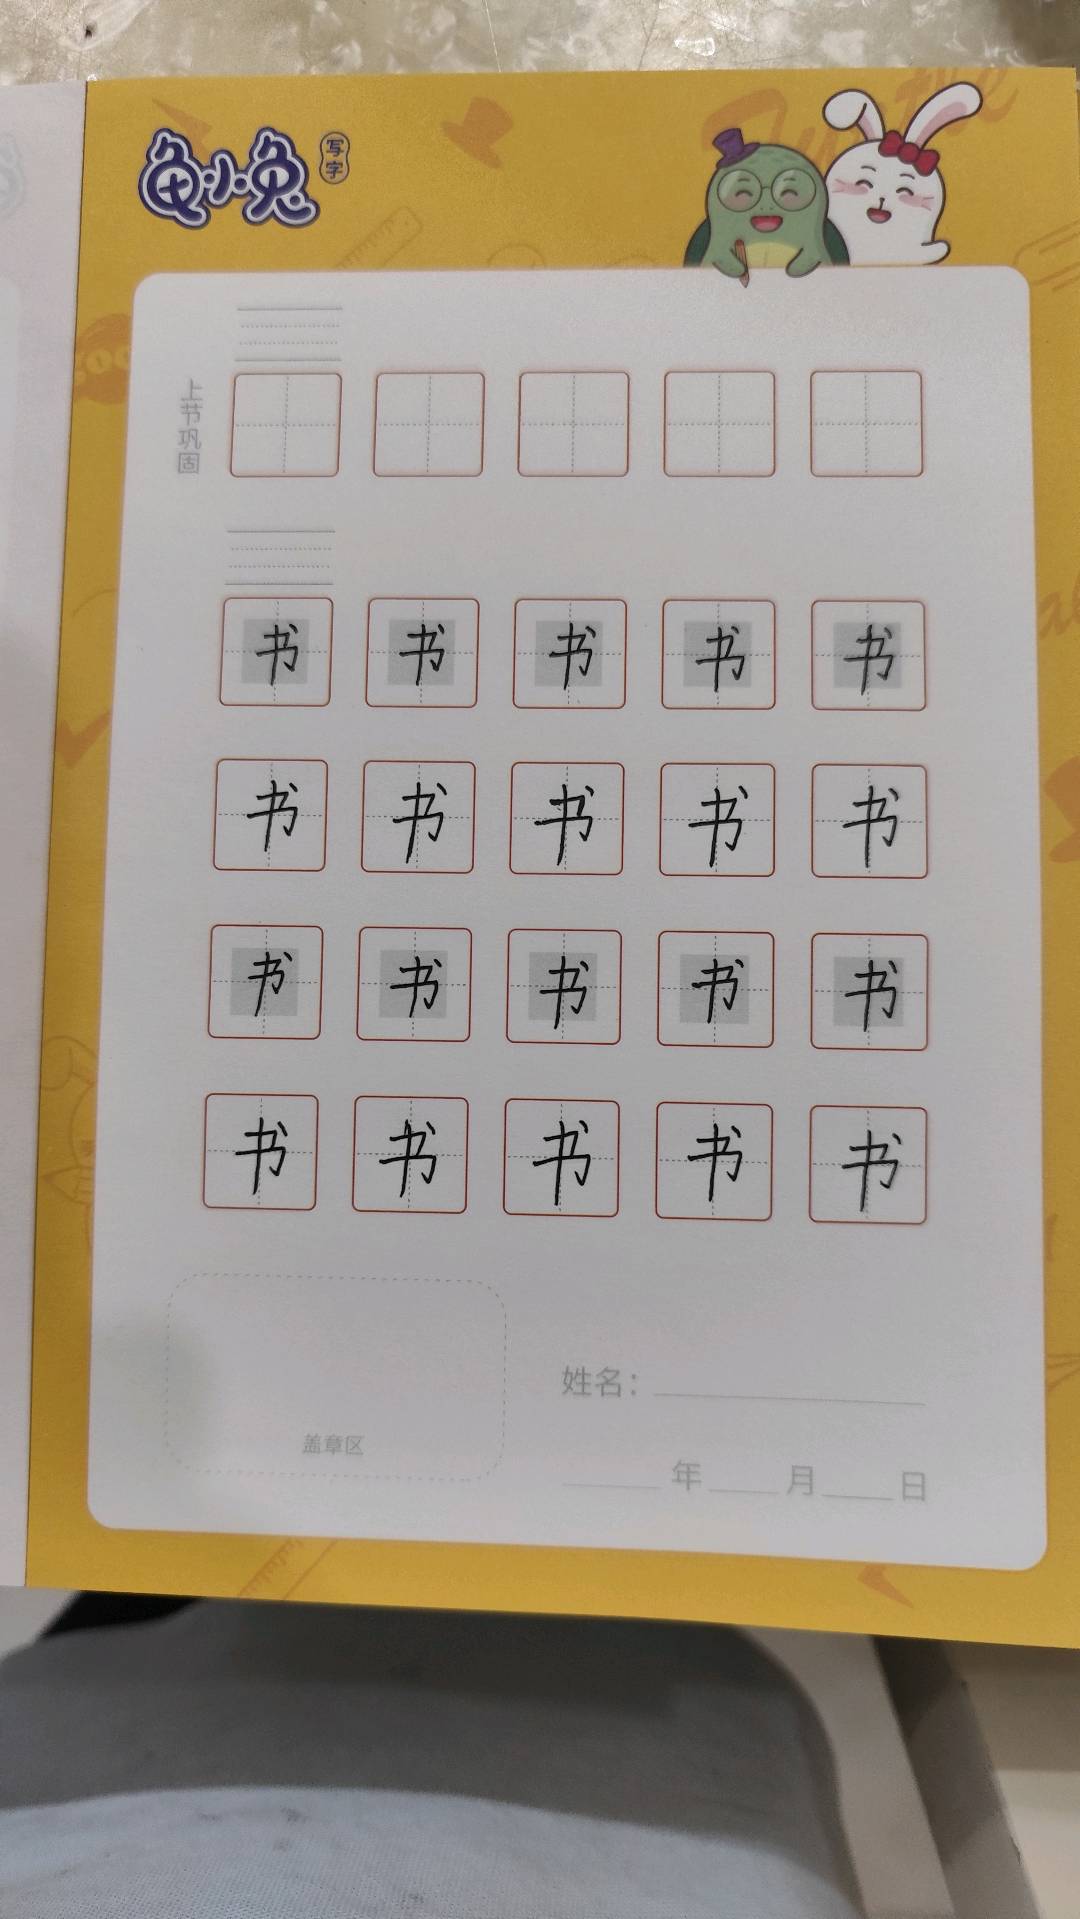 龟小兔 写字
上节巩固
书 书 书 书 书
书 书 书 书 书
书 书 书 书 书
书 书 书 书 书
姓名：
盖章区
年 月 日